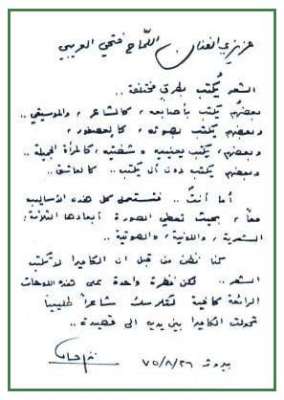 عزيزي الفنان اللمّاح فتحي العريبي
الشعر يُكتب بطرق مختلفة..
بعضهم يكتب بأصابعه، كالشاعر، والموسيقي..
وبعضهم يكتب بصوته، كالعصفور،
وبعضهم، يكتب بعينيه، وشفتيه، كالمرأة الجميلة..
وبعضهم يكتب دون أن يكتب.. كالعاشق..
أما أنت.. فتستعمل كل هذه الأساليب
معاً، بحيث تعطي الصورة أبعادها الثلاثة،
الشعرية، واللونية، والصوتية..
كنا نظن من قبل أن الكاميرا لا تكتب
الشعر.. لكن نظرة واحدة على هذه اللوحات
الرائعة كافية لتكريسك شاعراً طليعياً
تحولت الكاميرا بين يديه الى قصيدة..
بيروت ٧٥/٨/٢٦